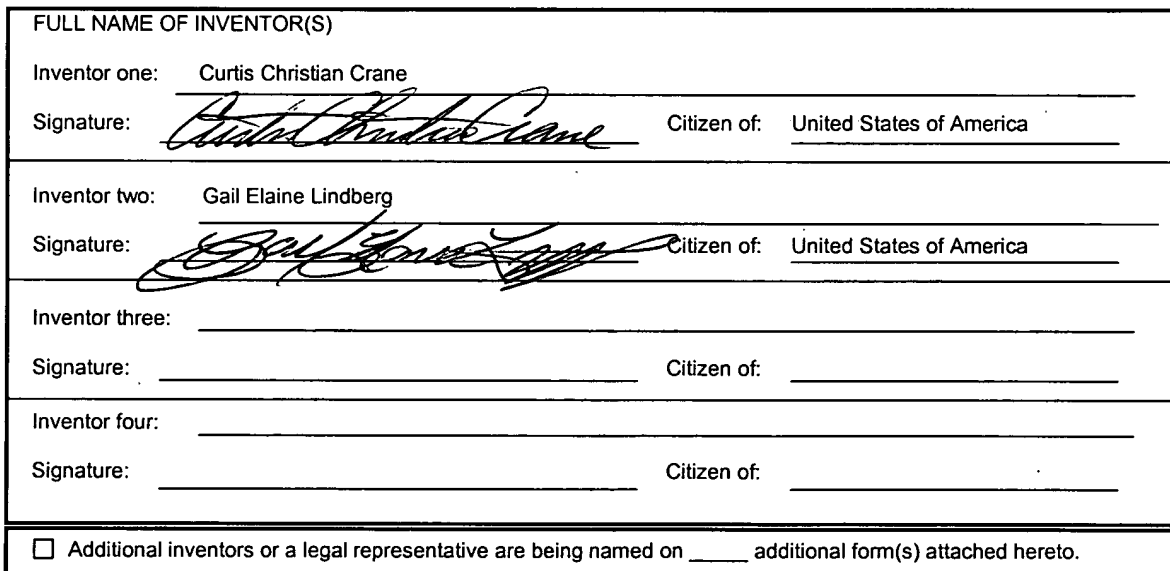 FULL NAME OF INVENTOR(S)
Inventor one: Curtis Christian Crane
Signature: Curtis Christian Crane Citizen of: United States of America
Inventor two: Gail Elaine Lindberg
Signature: Citizen of: United States of America
Inventor three:
Signature: Citizen of:
Inventor four:
Signature: Citizen of:
☐ Additional inventors or a legal representative are being named on _____ additional form(s) attached hereto.